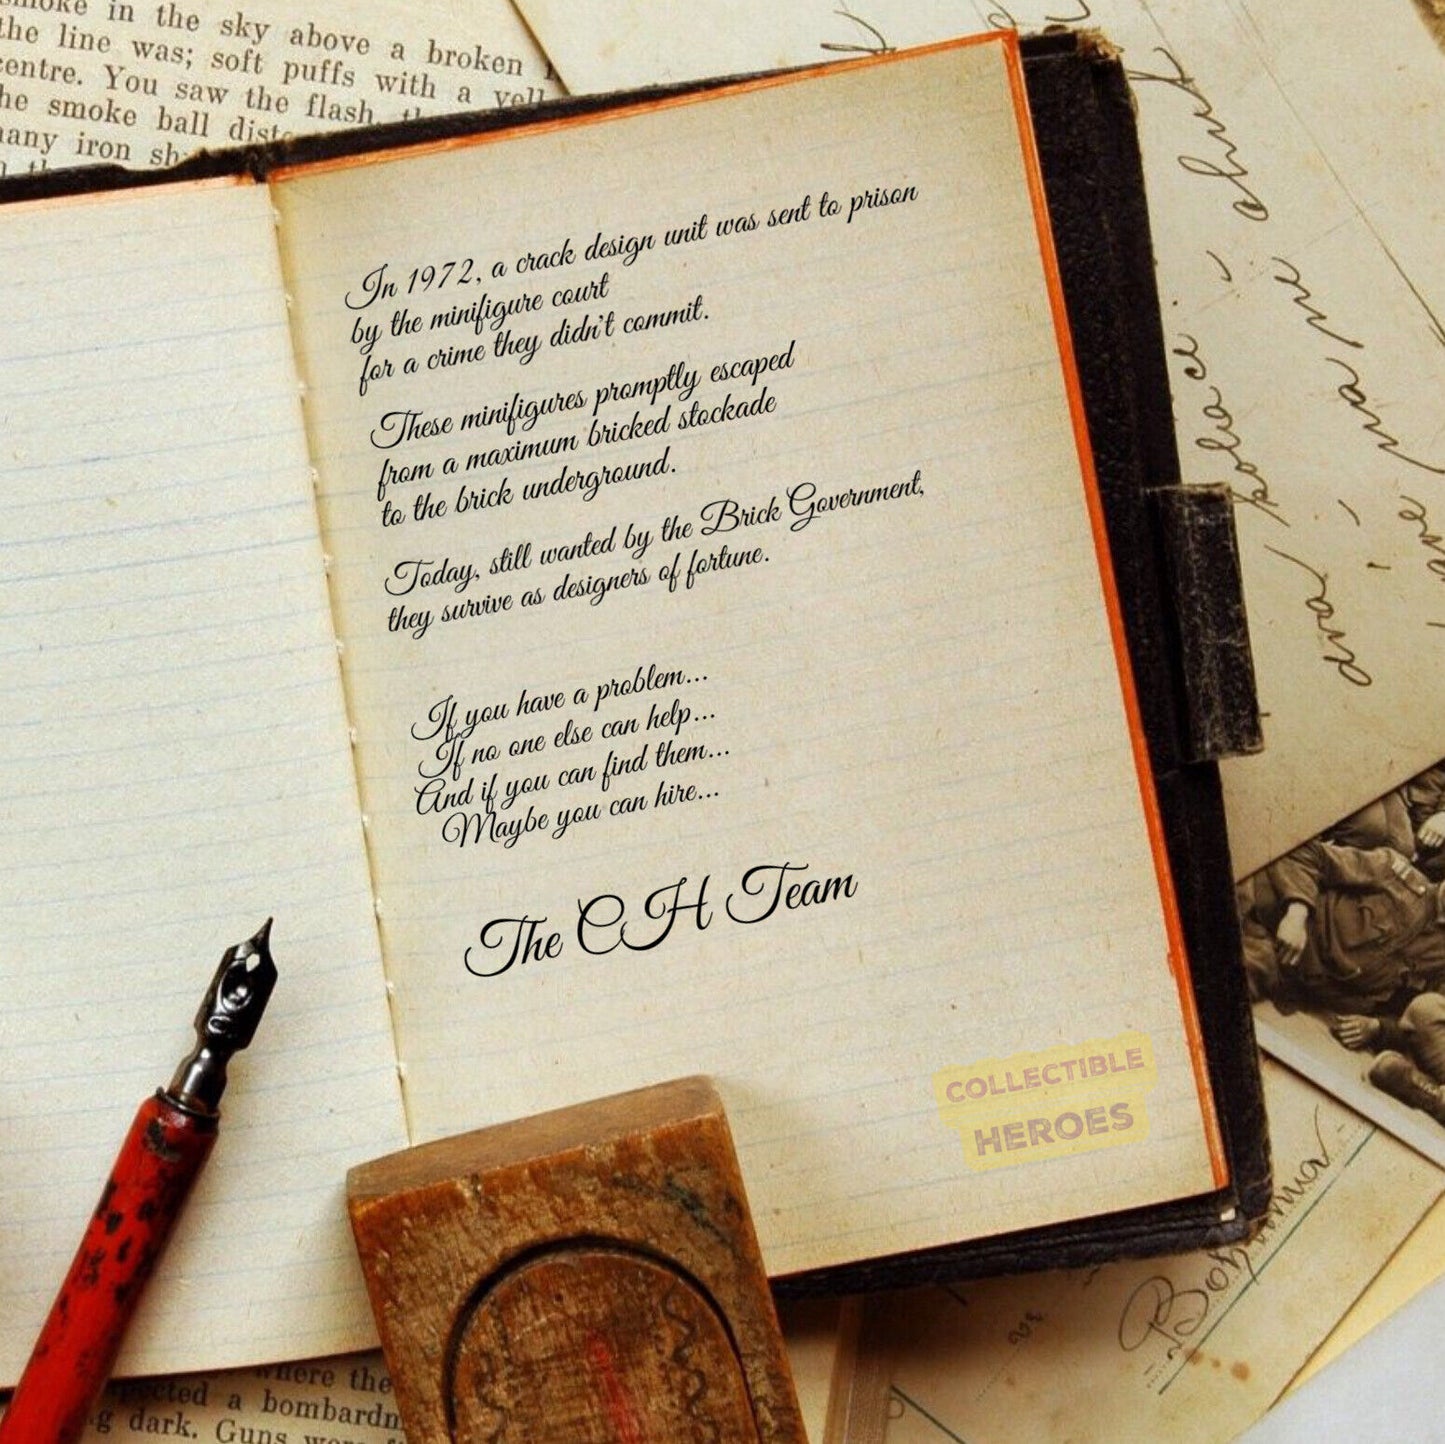 smoke in the sky above a broken
the line was; soft puffs with a
centre. You saw the flash,
he smoke ball
many iron
In 1972, a crack design unit was sent to prison
by the minifigure court
for a crime they didn't commit.
These minifigures promptly escaped
from a maximum bricked stockade
to the brick underground.
Today, still wanted by the Brick Government,
they survive as designers of fortune.
If you have a problem...
If no one else can help...
And if you can find them...
Maybe you can hire...
The CH Team
COLLECTIBLE
HEROES
where the
a bombardm
g dark. Guns